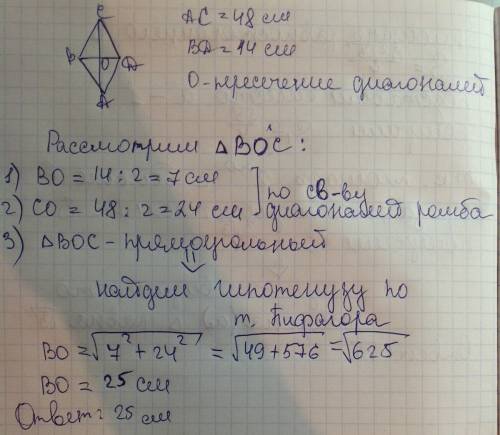 C
AC = 48 см
B O D
BD = 14 см
A
O - пересечение диагоналей
Рассмотрим △BOC:
1) BO = 14 : 2 = 7 см
2) CO = 48 : 2 = 24 см
по св-ву
диагоналей ромба
3) △BOC - прямоугольный
⇓
найдем гипотенузу по
т. Пифагора
BO = √7² + 24² = √49 + 576 = √625
BO = 25 см
Ответ: 25 см